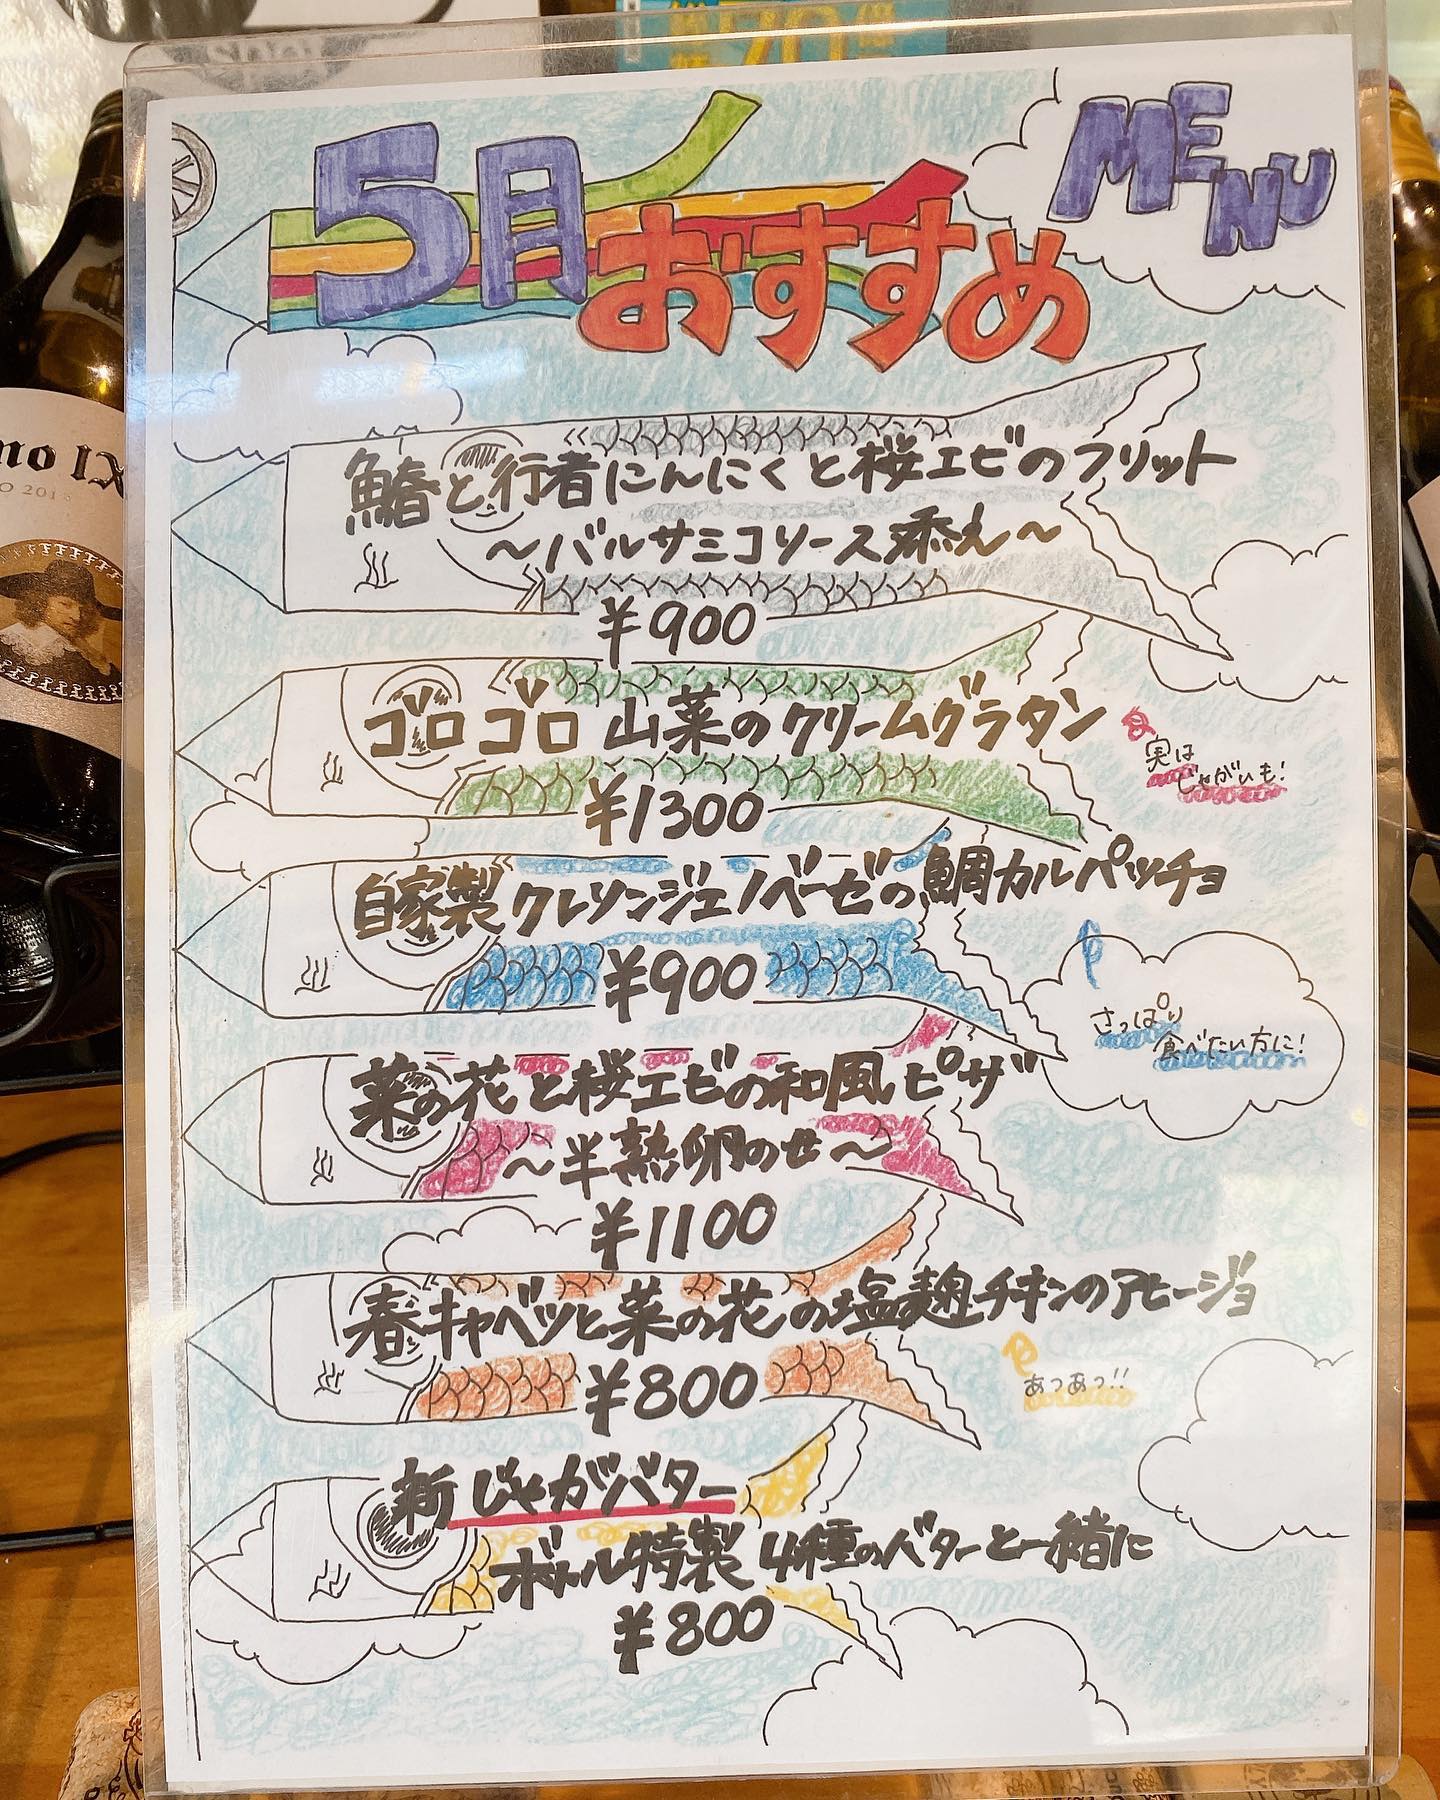 5月
おすすめ
MENU
鰆と行者にんにくと桜エビのフリット
〜バルサミコソース添え〜
¥900
ゴロゴロ山菜のクリームグラタン
実は
じゃがいも!
¥1300
自家製クレソンジェノベーゼの鯛カルパッチョ
¥900
さっぱり
食べたい方に!
菜の花と桜エビの和風ピザ
〜半熟卵のせ〜
¥1100
春キャベツと菜の花の塩麹チキンのアヒージョ
¥800
あっあっ!!
新じゃがバター
ボトル特製 4種のバターと一緒に
¥800